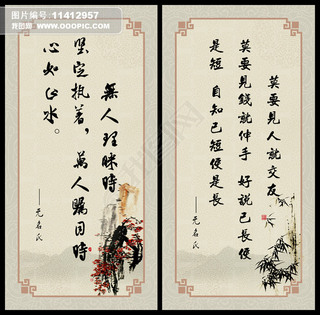 图片编号 11412957
我图网 www.ooopic.com
無人理睬時
坚定执着，萬人瞩目時
心如止水。
——无名氏
莫要見人就交友
莫要見錢就伸手 好说己長便
是短 自知己短便是長
——无名氏